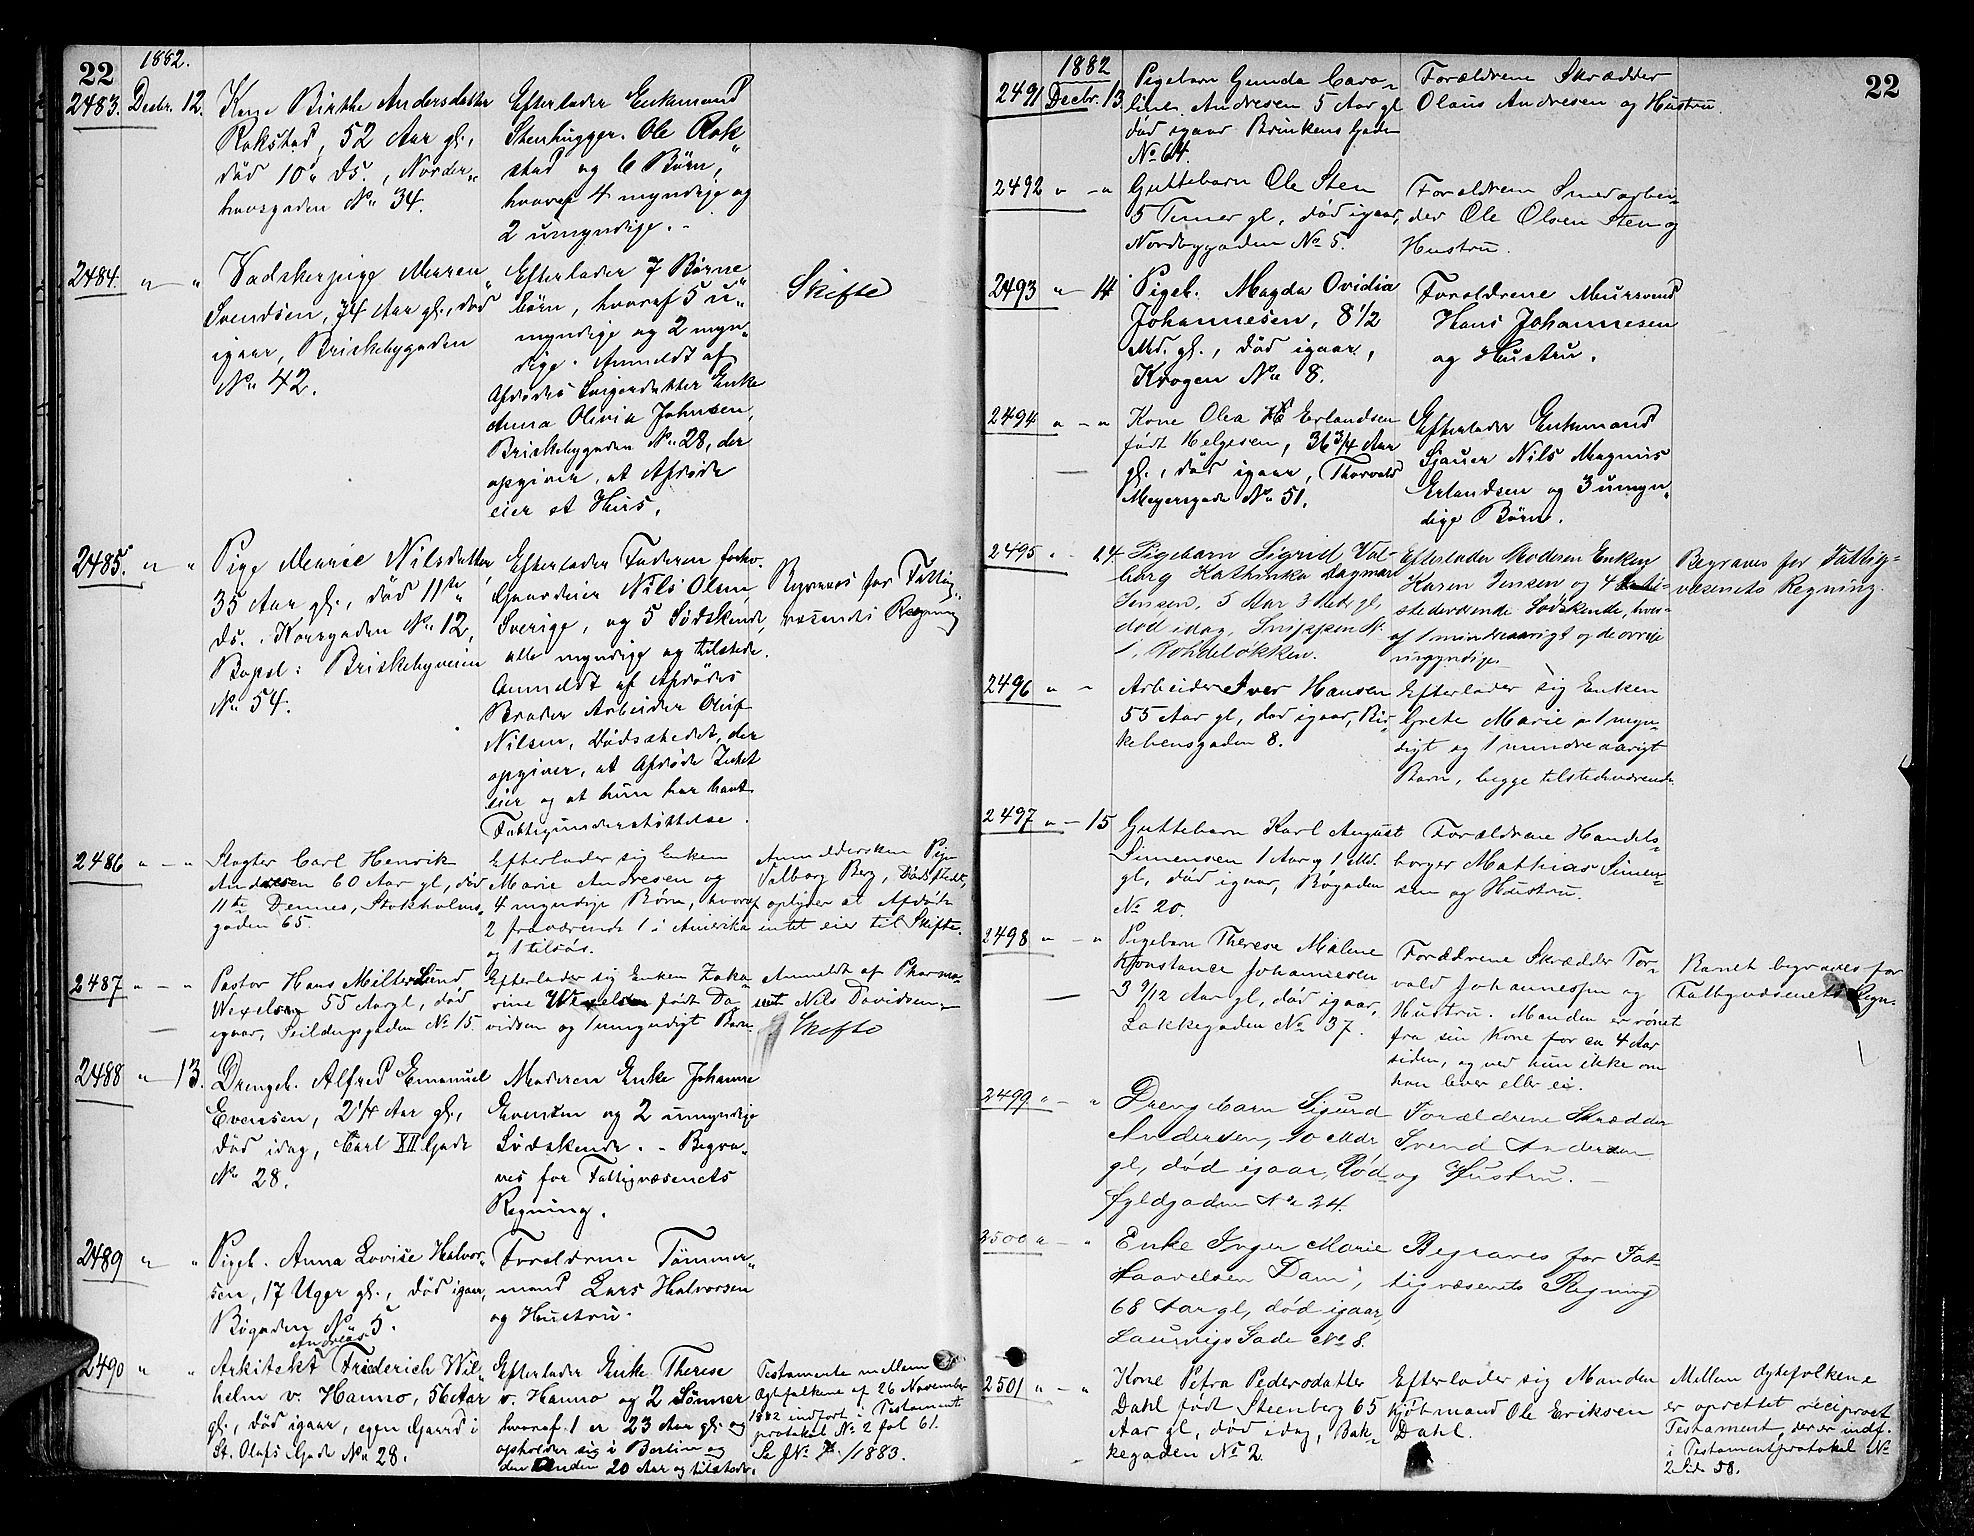 22
1882.
2483. Decbr. 12. Kone Birthe Andersdatter
Rokstad, 52 Aar gl.,
død 10de ds., Norder-
hovsgaden No. 34.
Efterlader Enkemand
Stenhugger Ole Rok-
stad og 6 Børn,
hvoraf 4 myndige og
2 umyndige. -
2484. " - " Vadskerpige Maren
Svendsen, 74 Aar gl., død
igaar, Briskebygaden
No. 42.
Efterlader 7 Børne-
børn, hvoraf 5 u-
myndige og 2 myn-
dige. Anmeldt af
Afdødes Svigerdatter Enke
Anna Olivia Johnsen,
Briskebygaden No. 28, der
opgiver, at Afdøde
eier et Hus.
Skifte
2485. " " Pige Marie Nilsdatter,
35 Aar gl., død 11te
ds. Korsgaden No. 12,
Bopæl: Briskebyveien
No. 54.
Efterlader Faderen forhv.
Gaardeier Nils Olsen,
Sverige, og 5 Sødskende,
alle myndige og tilstede.
Anmeldt af Afdødes
Broder Arbeider Oluf
Nilsen, Dødsstedet, der
opgiver, at Afdøde Intet
eier og at hun har havt
Fattigunderstøttelse.
Begraves for Fattig-
væsenets Regning
2486 " - " Slagter Carl Henrik
Andresen 60 Aar gl, død
11te Dennes, Stokholms-
gaden 65.
Efterlader sig Enken
Marie Andresen og
4 myndige Børn, hvoraf
2 fraværende 1 i Amerika
og 1 tilsøs.
Anmeldersken Pige
Valborg Berg, Dødsstedet,
oplyder at Afdøde
intet eier til Skifte.
2487 " - " Pastor Hans Milter Lund
Wexelsen 55 Aar gl, død
igaar, Seildugsgaden No 15.
Efterlader sig Enken Zaka-
rine Wexelsen født Da-
vidsen og 1 umyndigt Barn.
Anmeldt af Pharma-
ceut Nils Davidsen.
Skifte
2488 " - 13. Drengeb. Alfred Emanuel
Evensen, 2 1/4 Aar gl.,
død idag, Carl XII Gade
No 28.
Moderen Enke Johanne
Evensen og 2 umyndige
Sødskende. - Begra-
ves for Fattigvæsenets
Regning.
2489 " " Pigeb. Anna Lovise Halvor-
sen, 17 Uger gl., død igaar,
Bøgaden No 5.
Forældrene Tømmer-
mand Lars Halvorsen
og Hustru.
2490 " " Arkitekt Andreas Friederich Wil-
helm v. Hanno, 56 Aar
gl., død igaar, egen Gaard i
St. Olafs Gade No. 28.
Efterlader Enke Therese
v. Hanno og 2 Sønner
hvoraf 1 er 23 Aar gl. og
opholder sig i Berlin og
den Anden 20 Aar og tilstede.
Testamente mellem
Ægtefolkene af 26 November
1882 indført i Testament-
protokol No 2 fol 61.
Se J No /1883.
22
1882
2491 Decbr. 13 Pigebarn Gunda Caro-
line Andresen 5 Aar gl
død igaar Brinkens Gade
No 64.
Forældrene Skrædder
Olaus Andresen og Hustru.
2492 " - " Guttebarn Ole Sten
5 Timer gl, død igaar,
Nordbygaden No 5.
Forældrene Smedarbei-
der Ole Olsen Sten og
Hustru.
2493 " - 14 Pigeb. Magda Ovidia
Johannesen, 8 1/2
Md. gl., død igaar,
Krogen No 8.
Forældrene Muursvend
Hans Johannesen
og Hustru.
2494 " - " Kone Olea Erlandsen
født Helgesen, 36 3/4 Aar
gl., død igaar, Thorvald
Meyersgade No 51.
Efterlader Enkemand
Sjauer Nils Magnus
Erlandsen og 3 umyn-
dige Børn.
2495 " - 14 Pigebarn Sigrid Val-
borg Kathinka Dagmar
Jensen, 5 Aar 3 Mdr gl,
død idag, Snippen No
1, Rohdeløkken.
Efterlader Moderen Enken
Karen Jensen og 4 til-
stedeværende Sødskende, hvor-
af 1 mindreaarigt og de øvrige
umyndige
Begraves for Fattig-
væsenets Regning.
2496 " - Arbeider Iver Hansen
55 Aar gl, død igaar, Bir-
kebensgaden 8.
Efterlader sig Enken
Grete Marie og 1 myn-
digt og 1 mindreaarigt
Barn, begge tilstedeværende.
2497 " - 15 Guttebarn Karl August
Simensen 1 Aar og 1 Md.
gl, død igaar, Bøgaden
No 20.
Forældrene Handels-
borger Mathias Simen-
sen og Hustru.
2498 " - " Pigebarn Therese Malene
Konstance Johannesen
3 9/12 Aar gl, død igaar,
Lakkegaden No 37.
Forældrene Skrædder Tor-
vald Johannessen og
Hustru. Manden er rømt
fra sin Kone for ca 4 Aar
siden, og ved hun ikke om
han lever eller ei.
Barnet begraves for
Fattigvæsenets Regn.
2499. " - " Drengebarn Sigurd
Andersen, 10 Mdr
gl, død igaar, Rød-
fyldgaden No 24.
Forældrene Skrædder
Svend Andersen
og Hustru. -
2500 " - " Enke Inger Marie
Haavelsen Dam,
68 Aar gl, død igaar,
Laurvigs Gade No 8.
Begraves for Fat-
tigvæsenets Regning
2501 " - " Kone Petra Pedersdatter
Dahl født Steenberg 65
Aar gl, død idag, Bak-
kegaden No 2.
Efterlader sig Manden
Kjøbmand Ole Eriksen
Dahl.
Mellem Ægtefolkene
er oprettet reciproct
Testament, der er indf.
i Testamentprotokol No
2 Side 58.